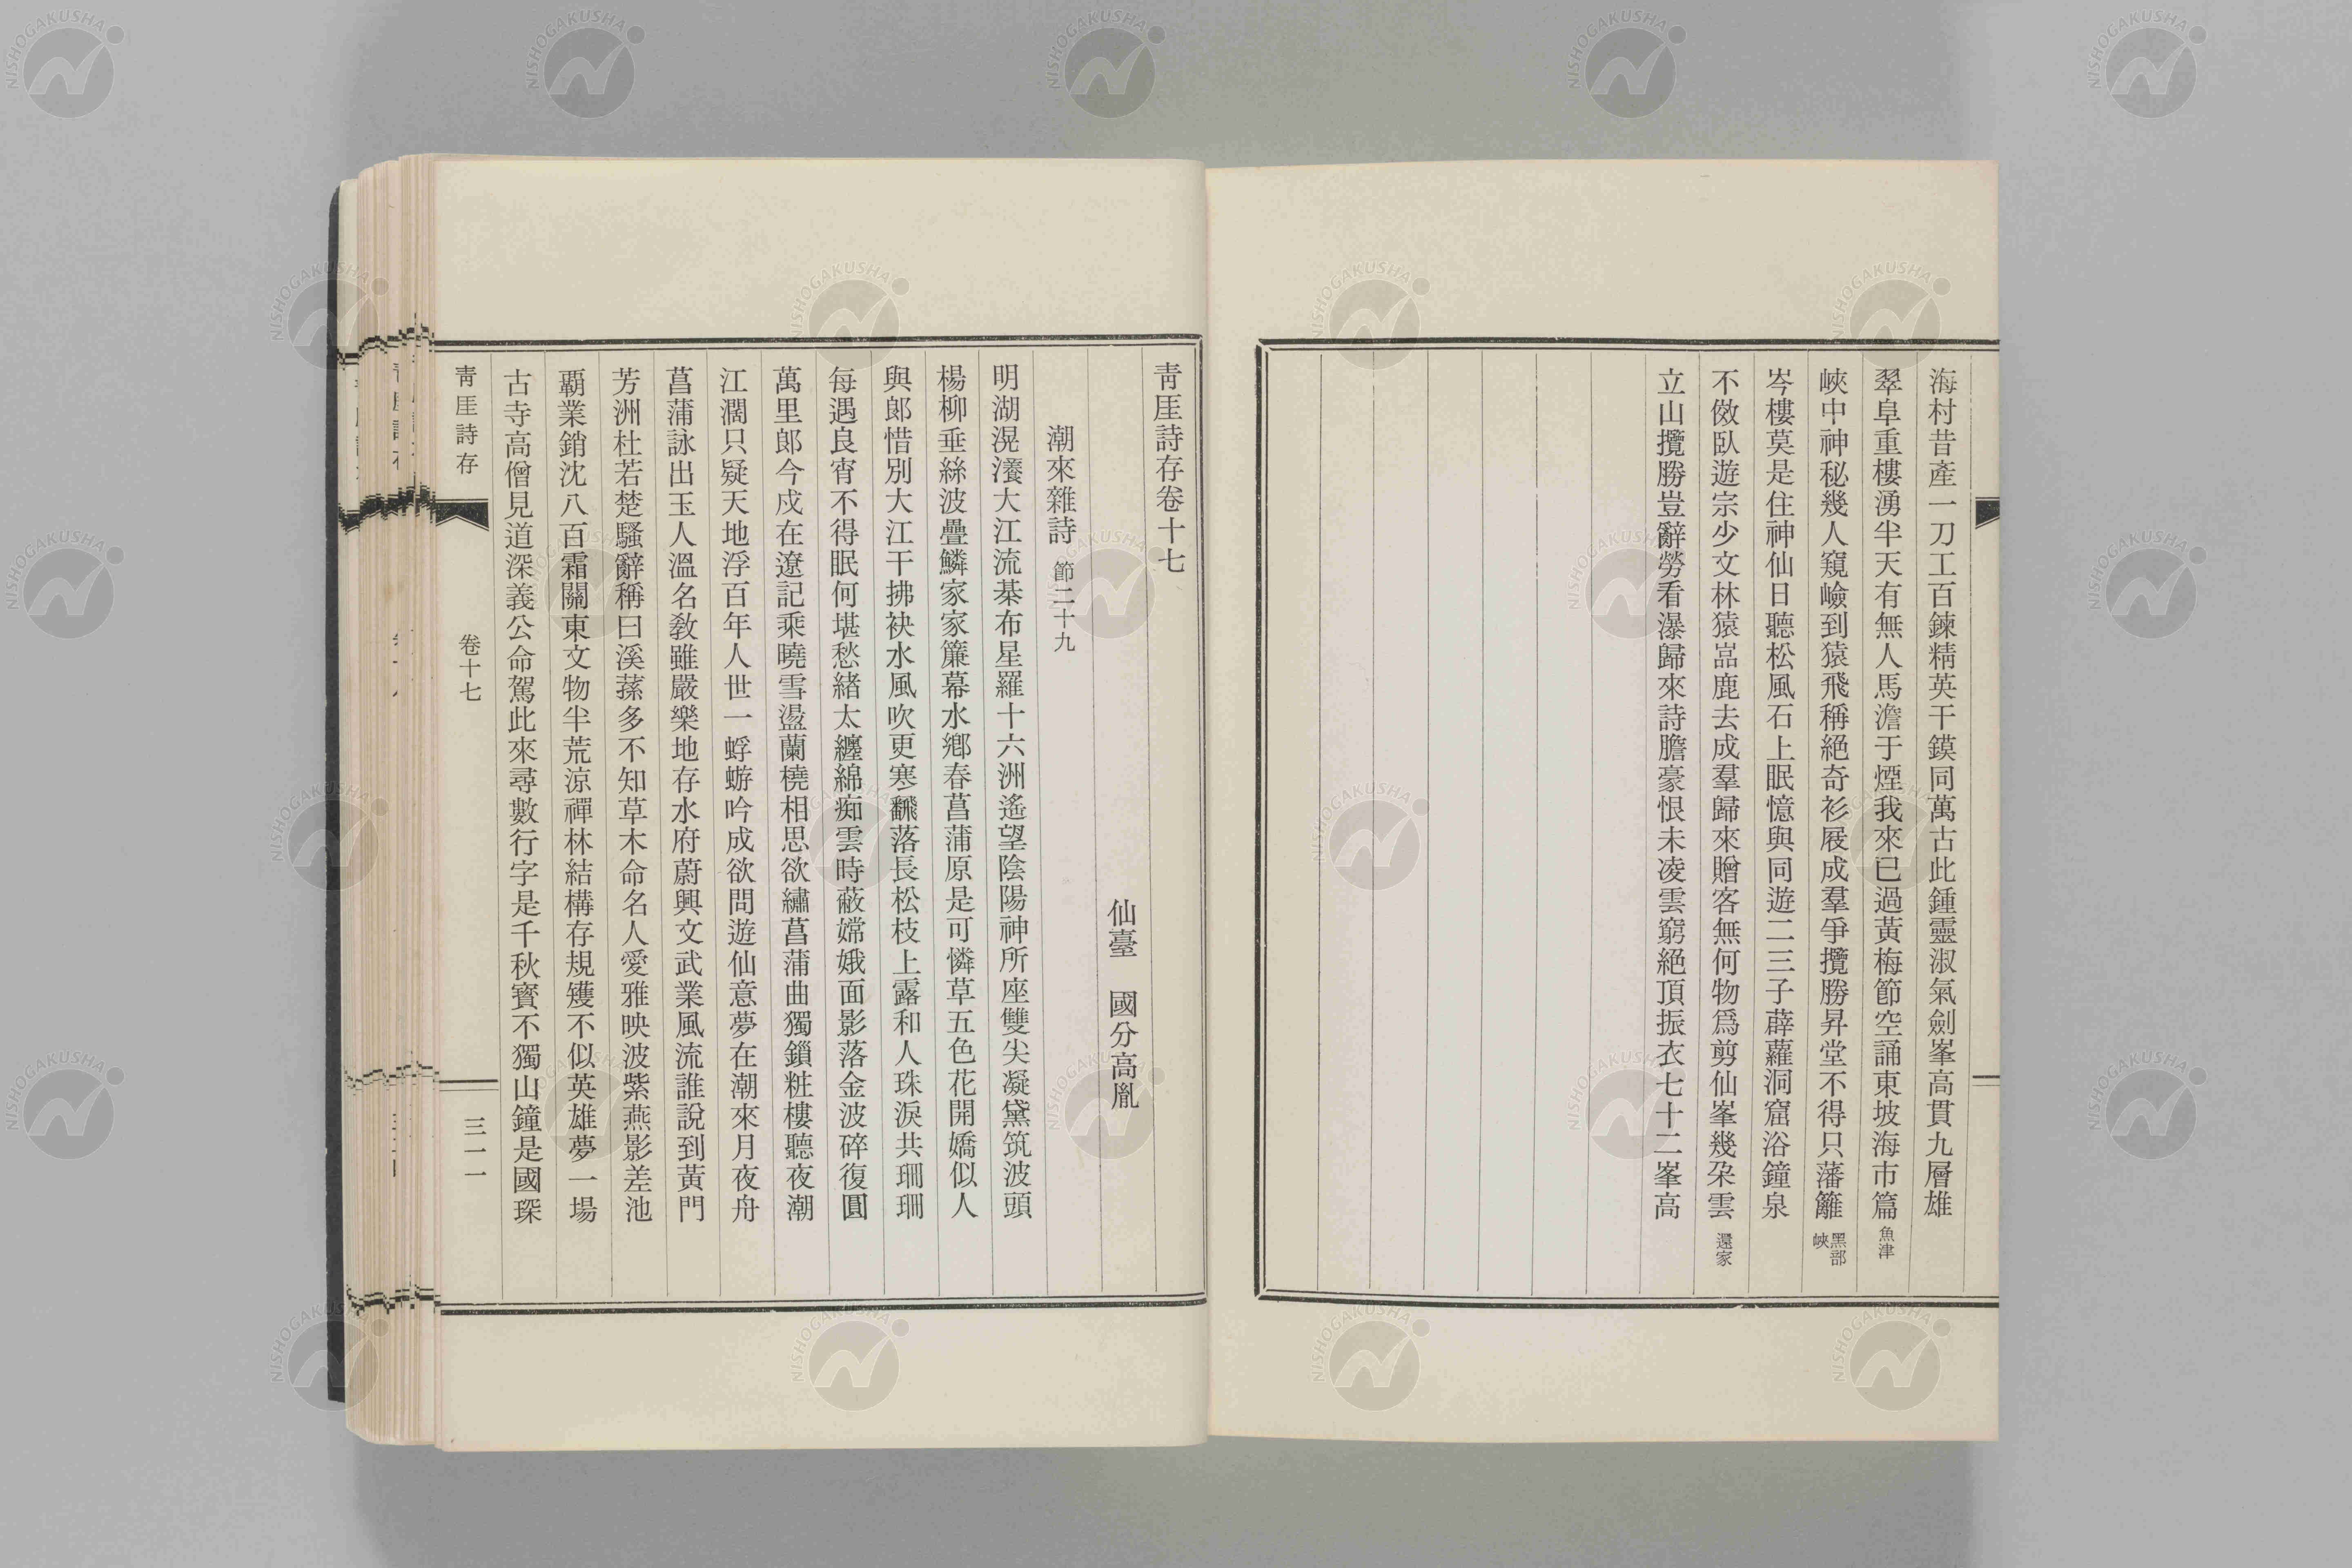 海村昔產一刀工百鍊精英干鏌同萬古此鍾靈淑氣劍峯高貫九層雄
翠阜重樓湧半天有無人馬澹于煙我來已過黃梅節空誦東坡海市篇魚津
峽中神秘幾人窺嶮到猿飛稱絕奇衫屐成羣爭攬勝昇堂不得只藩籬黑部峽
岑樓莫是住神仙日聽松風石上眠憶與同遊二三子薜蘿洞窟浴鐘泉
不倣臥遊宗少文林猿嵓鹿去成羣歸來贈客無何物爲剪仙峯幾朶雲還家
立山攬勝豈辭勞看瀑歸來詩膽豪恨未凌雲窮絕頂振衣七十二峯高
靑厓詩存卷十七
仙臺 國分高胤
潮來雜詩 節二十九
明湖滉瀁大江流棊布星羅十六洲遙望陰陽神所座雙尖凝黛筑波頭
楊柳垂絲波疊鱗家家簾幕水鄕春菖蒲原是可憐草五色花開嬌似人
與郞惜別大江干拂袂水風吹更寒飜落長松枝上露和人珠淚共珊珊
每遇良宵不得眠何堪愁緖太纏綿痴雲時蔽嫦娥面影落金波碎復圓
萬里郞今戍在遼記乘曉雪盪蘭橈相思欲繡菖蒲曲獨鎖粧樓聽夜潮
江濶只疑天地浮百年人世一蜉蝣吟成欲問遊仙意夢在潮來月夜舟
菖蒲詠出玉人溫名敎雖嚴樂地存水府蔚興文武業風流誰說到黃門
芳洲杜若楚騷辭稱曰溪蓀多不知草木命名人愛雅映波紫燕影差池
覇業銷沈八百霜關東文物半荒涼禪林結構存規矱不似英雄夢一場
古寺高僧見道深義公命駕此來尋數行字是千秋寶不獨山鐘是國琛
靑厓詩存
卷十七
三一一